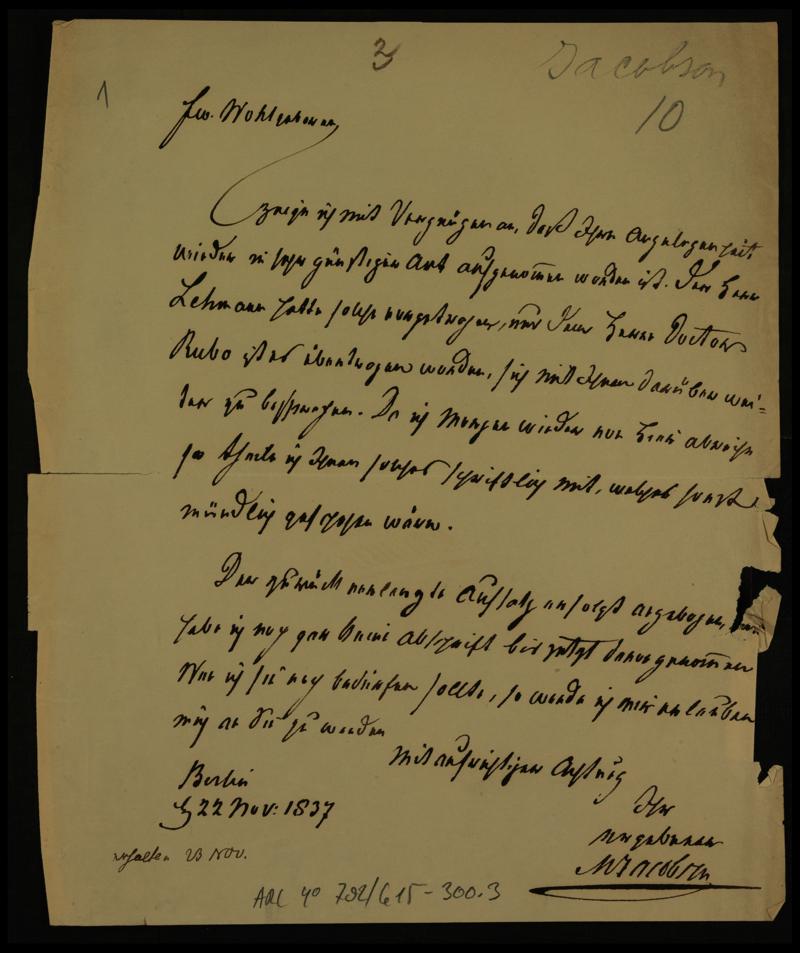 3
Jacobson
10
1
Ew. Wohlgeboren
zeige ich mit Vergnügen an, daß Ihre Angelegenheit
wieder in sehr günstiger Art aufgenommen worden ist. Der Herr
Lehmann hatte solche vorgetragen, und dem Herrn Doctor
Rubo ist es übertragen worden, sich mit Ihnen darüber wei=
ter zu besprechen. Da ich Morgen wieder von hier abreise
so theile ich Ihnen solches schriftlich mit, welches sonst
mündlich geschehen wäre.
Der zurück verlangte Aufsatz erfolgt angebogen,
habe ich noch gar keine Abschrift bis jetzt davon genommen
Wen ich sie noch bedürfen sollte, so werde ich mir erlauben
mich an Sie zu wenden
Mit aufrichtiger Achtung
Berlin
d 22 Nov: 1837
Ihr
ergebener
M Jacobson
erhalten 23 Nov.
ARC 4° 792/G15-300.3